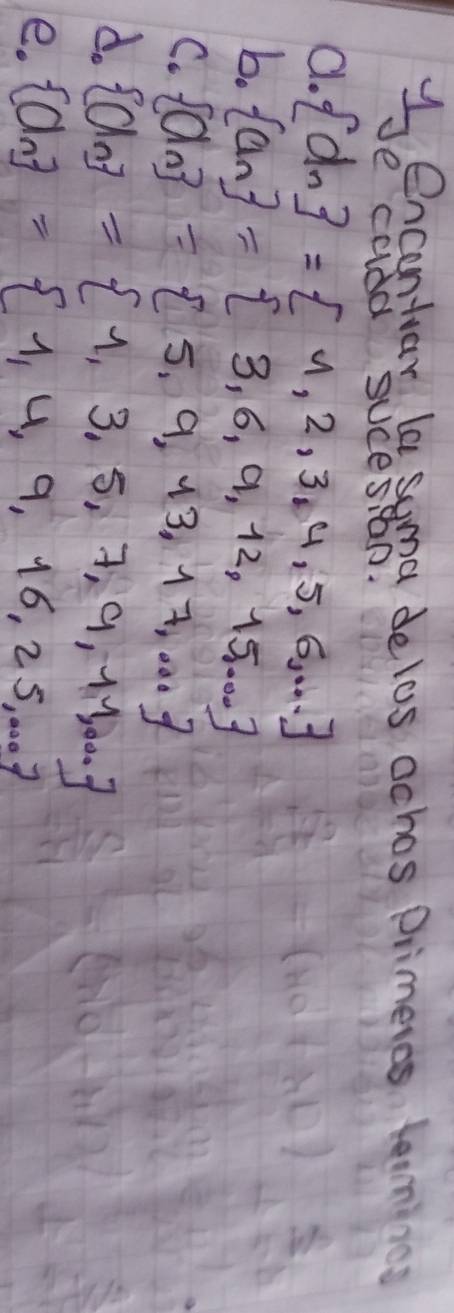 1 Encontrar la suma de los ochos primeros terminos
de cada sucesión.
a. {an} = { 1, 2, 3, 4, 5, 6, ...}
b. {an} = { 3, 6, 9, 12, 15, ...}
c. {an} = { 5, 9, 13, 17, ...}
d. {an} = { 1, 3, 5, 7, 9, 11, ...}
e. {an} = { 1, 4, 9, 16, 25, ...}